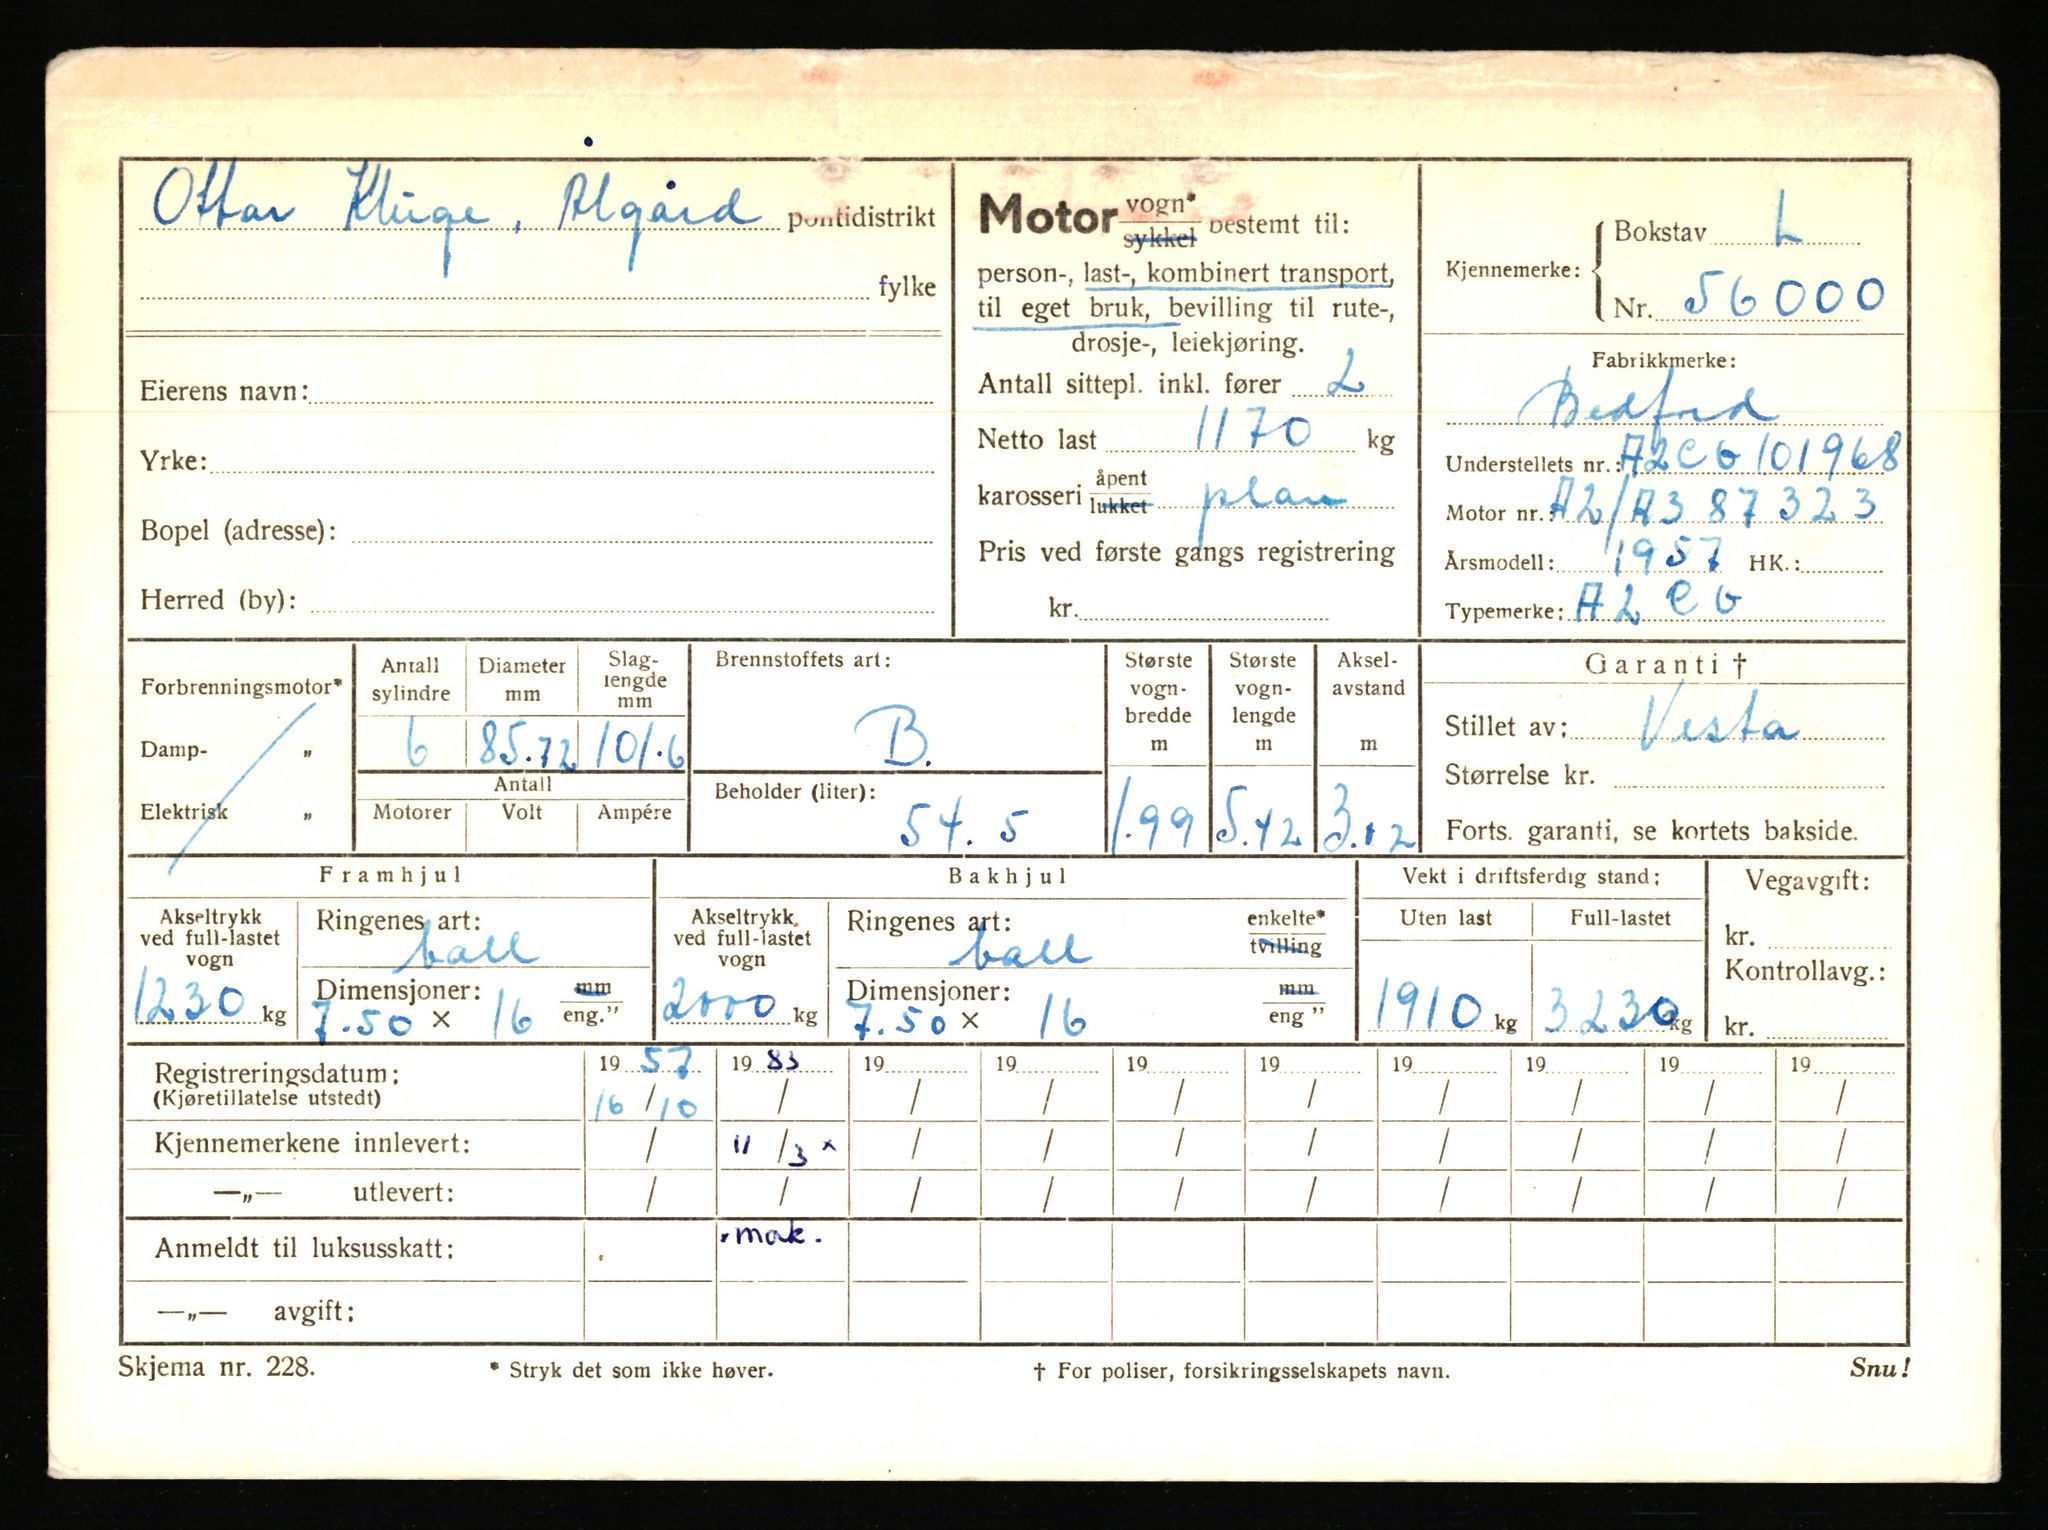 Ottar Kluge, Ålgård politidistrikt
fylke
Eierens navn:
Yrke:
Bopel (adresse):
Herred (by):
Motor vogn* sykkel bestemt til:
person-, last-, kombinert transport,
til eget bruk, bevilling til rute-,
drosje-, leiekjøring.
Antall sittepl. inkl. fører 2
Netto last 1170 kg
karosseri åpent lukket plan
Pris ved første gangs registrering
kr.
Kjennemerke: Bokstav L
Nr. 56000
Fabrikkmerke:
Bedford
Understellets nr.: A2CG101968
Motor nr.: A2/A387323
Årsmodell: 1957 HK.:
Typemerke: A2CG
Forbrenningsmotor*
Damp- „
Elektrisk „
Antall sylindre
6
Diameter mm
85.72
Slag-lengde mm
101.6
Antall
Motorer Volt Ampére
Brennstoffets art:
B.
Beholder (liter):
54.5
Største vogn-bredde m
1.99
Største vogn-lengde m
5.42
Aksel-avstand m
3.12
Garanti †
Stillet av: Vesta
Størrelse kr.
Forts. garanti, se kortets bakside.
Framhjul
Akseltrykk ved full-lastet vogn
1230 kg
Ringenes art:
ball
Dimensjoner: mm
7.50 × 16 eng.”
Bakhjul
Akseltrykk ved full-lastet vogn
2000 kg
Ringenes art: enkelte* tvilling
ball
Dimensjoner: mm
7.50 × 16 eng ”
Vekt i driftsferdig stand:
Uten last Full-lastet
1910 kg 3230 kg
Vegavgift:
kr.
Kontrollavg.:
kr.
Registreringsdatum: 19 57 19 83 19 19 19 19 19 19 19 19
(Kjøretillatelse utstedt) 16/10 / / / / / / / / /
Kjennemerkene innlevert: / 11/3 × / / / / / / / /
—„— utlevert: / / / / / / / / / /
Anmeldt til luksusskatt: mak.
—„— avgift:
Skjema nr. 228. * Stryk det som ikke høver. † For poliser, forsikringsselskapets navn. Snu!